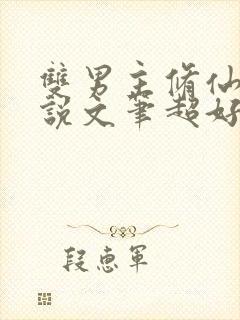 雙男主脩仙
說文筆超好
段惠軍